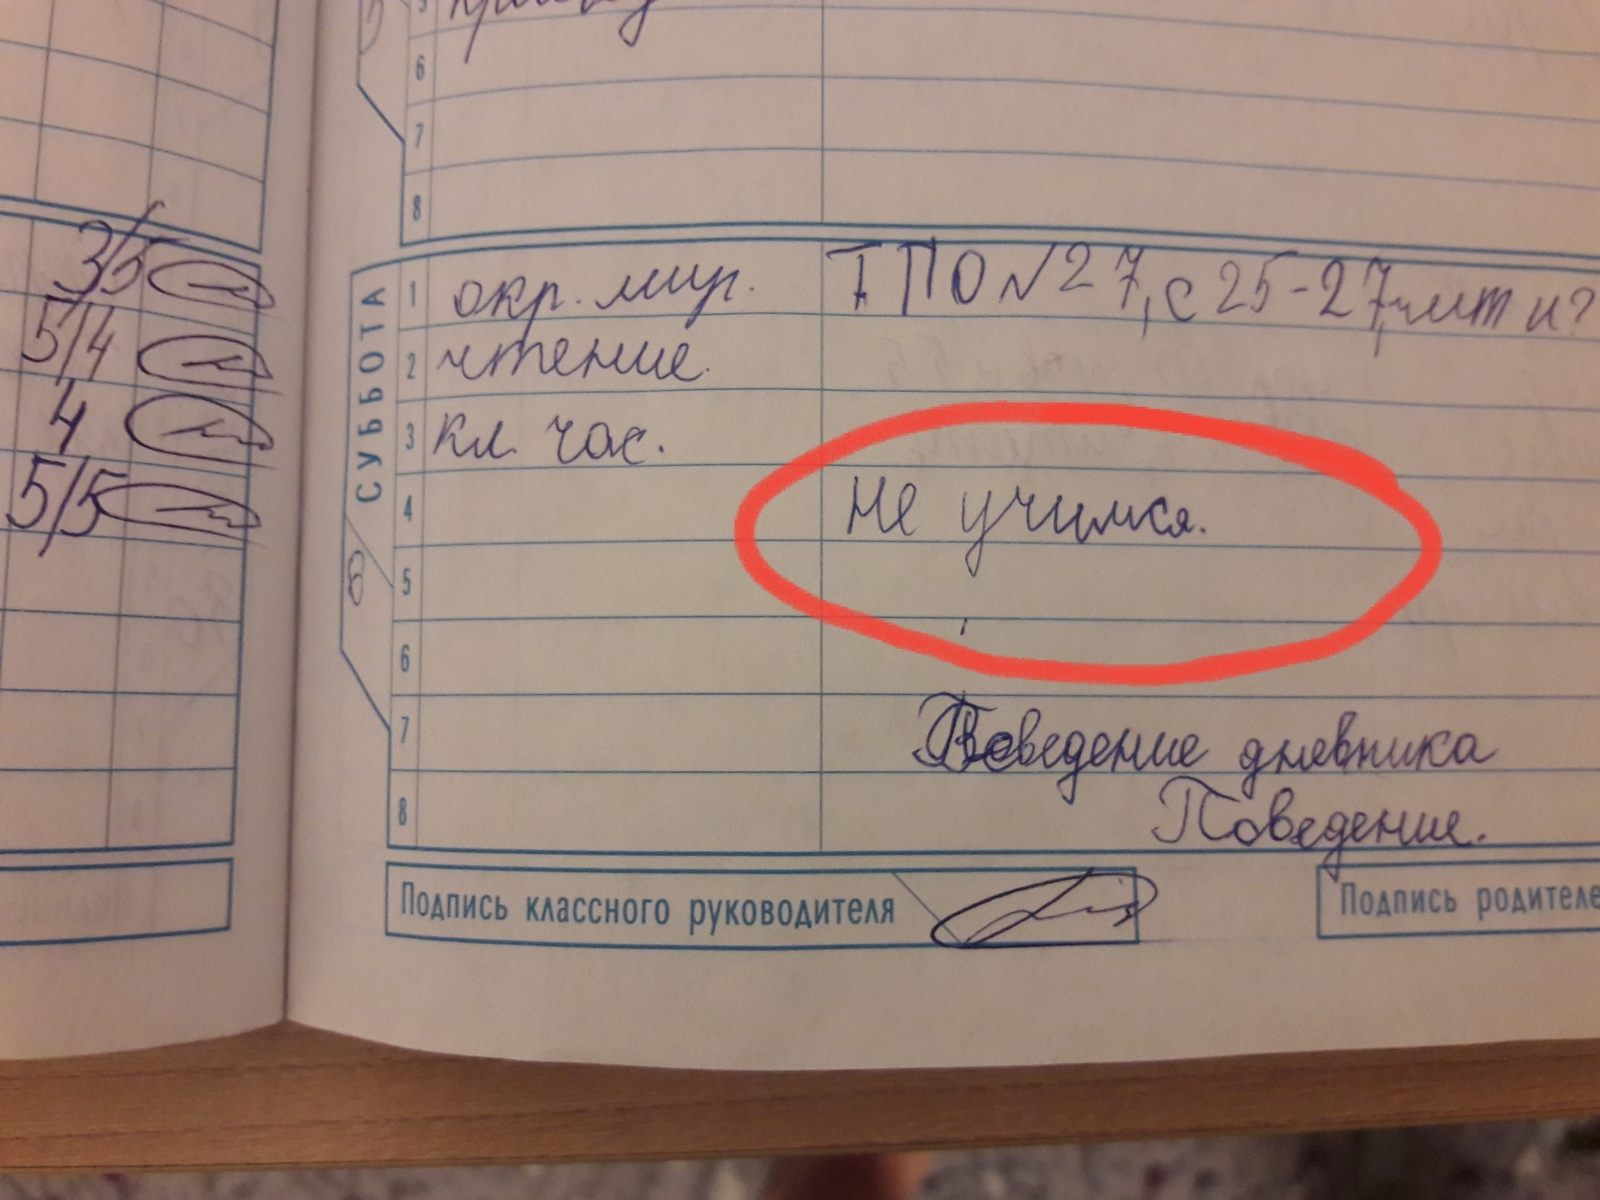 5
6
7
8
3/5
5/4
4
5/5
СУББОТА
6
1 окр. мир. ТПО №27, с 25-27,
2 чтение.
3 кл. час.
4 Не учимся.
5
6
7 Поведение дневника
8 Поведение.
Подпись классного руководителя
Подпись родителе